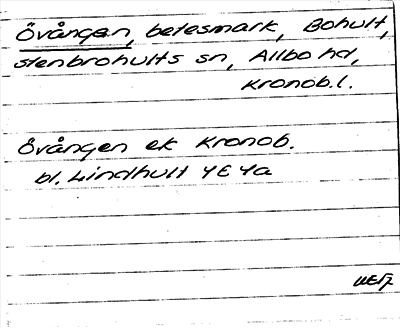 Övången, betesmark, Bohult,
Stenbrohults sn, Allbo hd,
Kronob. l.
Övången ek Kronob.
bl. Lindhult 4E 4a